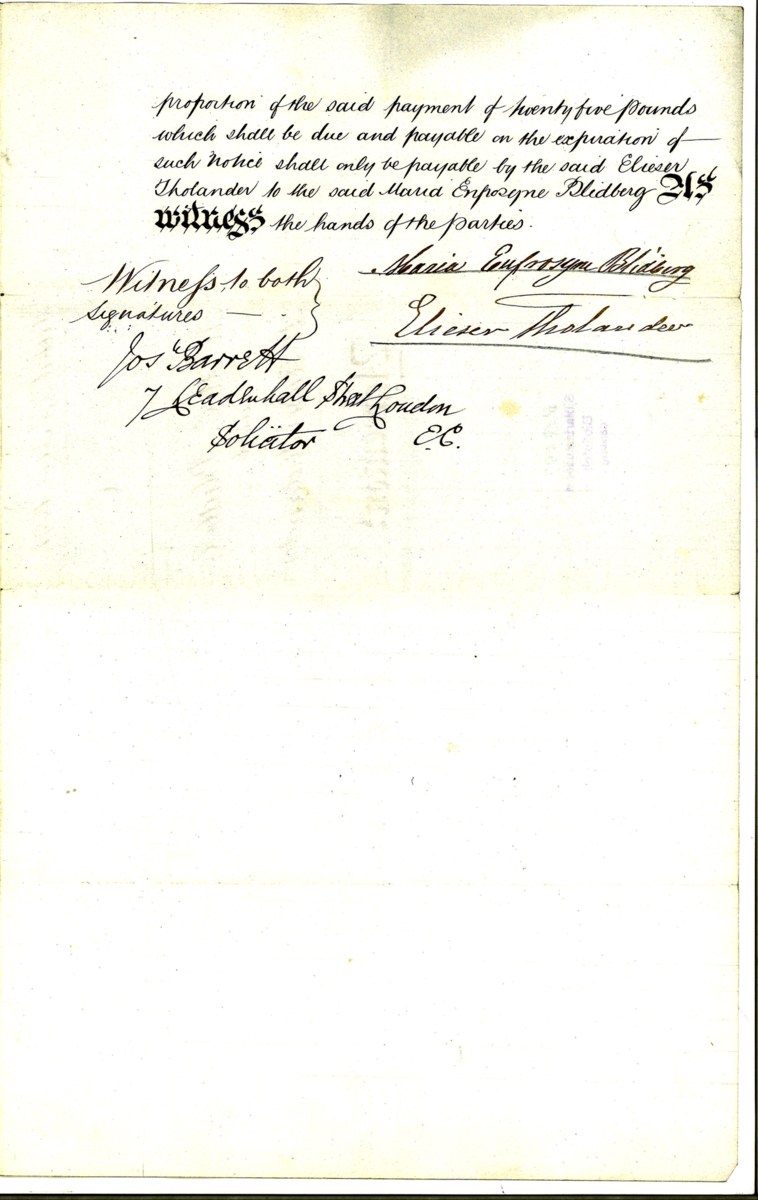 proportion of the said payment of twenty five pounds
which shall be due and payable on the expiration of —
such notice shall only be payable by the said Elieser
Tholander to the said Maria Enfrosyne Blidberg As
witness the hands of the parties.
Maria Eufrosyne Blidberg
Witness to both
signatures —
Elieser Tholander
Jos Barrett
7 Leadenhall Street London
Solicitor E.C.